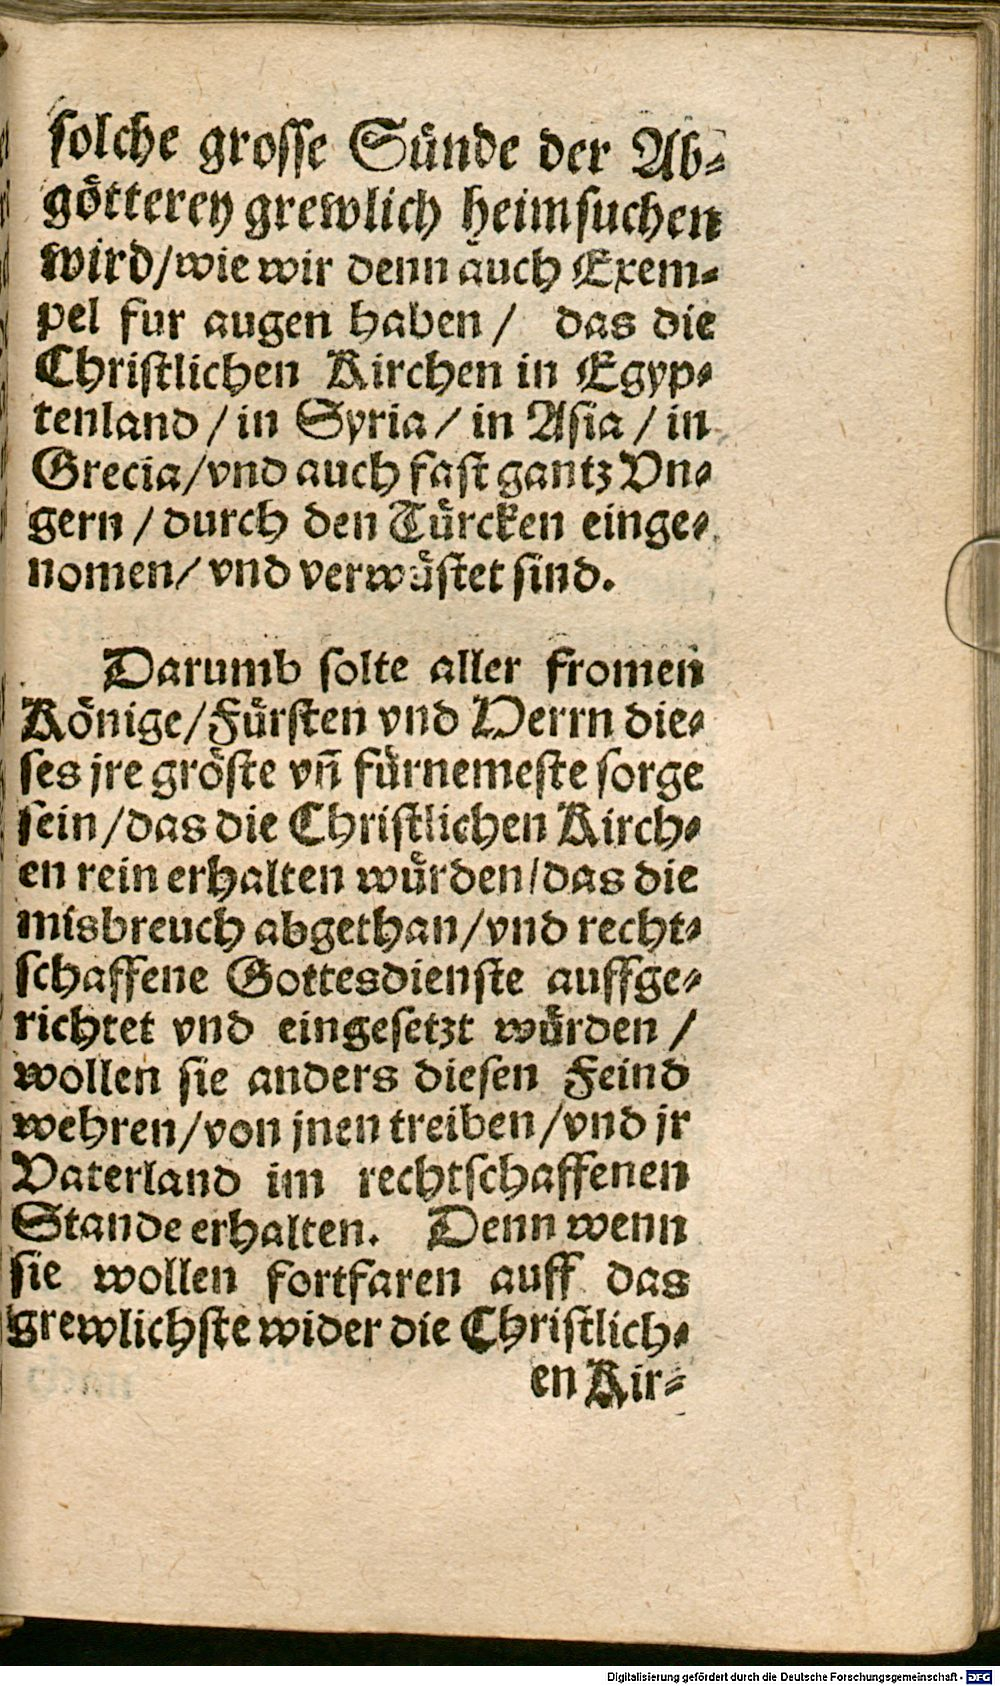 solche grosse Sünde der Ab-
götterey grewlich heimsuchen
wird/wie wir denn auch Exem-
pel fur augen haben / das die
Christlichen Kirchen in Egyp-
tenland / in Syria / in Asia / in
Grecia/vnd auch fast gantz Vn-
gern / durch den Türcken einge-
nomen/ vnd verwüstet sind.
Darumb solte aller fromen
Könige/Fürsten vnd Herrn die-
ses jre gröste vñ fürnemeste sorge
sein/das die Christlichen Kirch-
en rein erhalten würden/das die
misbreuch abgethan/vnd recht-
schaffene Gottesdienste auffge-
richtet vnd eingesetzt würden /
wollen sie anders diesen Feind
wehren/von jnen treiben/vnd jr
Vaterland im rechtschaffenen
Stande erhalten. Denn wenn
sie wollen fortfaren auff das
grewlichste wider die Christlich-
en Kir-
Digitalisierung gefördert durch die Deutsche Forschungsgemeinschaft - DFG